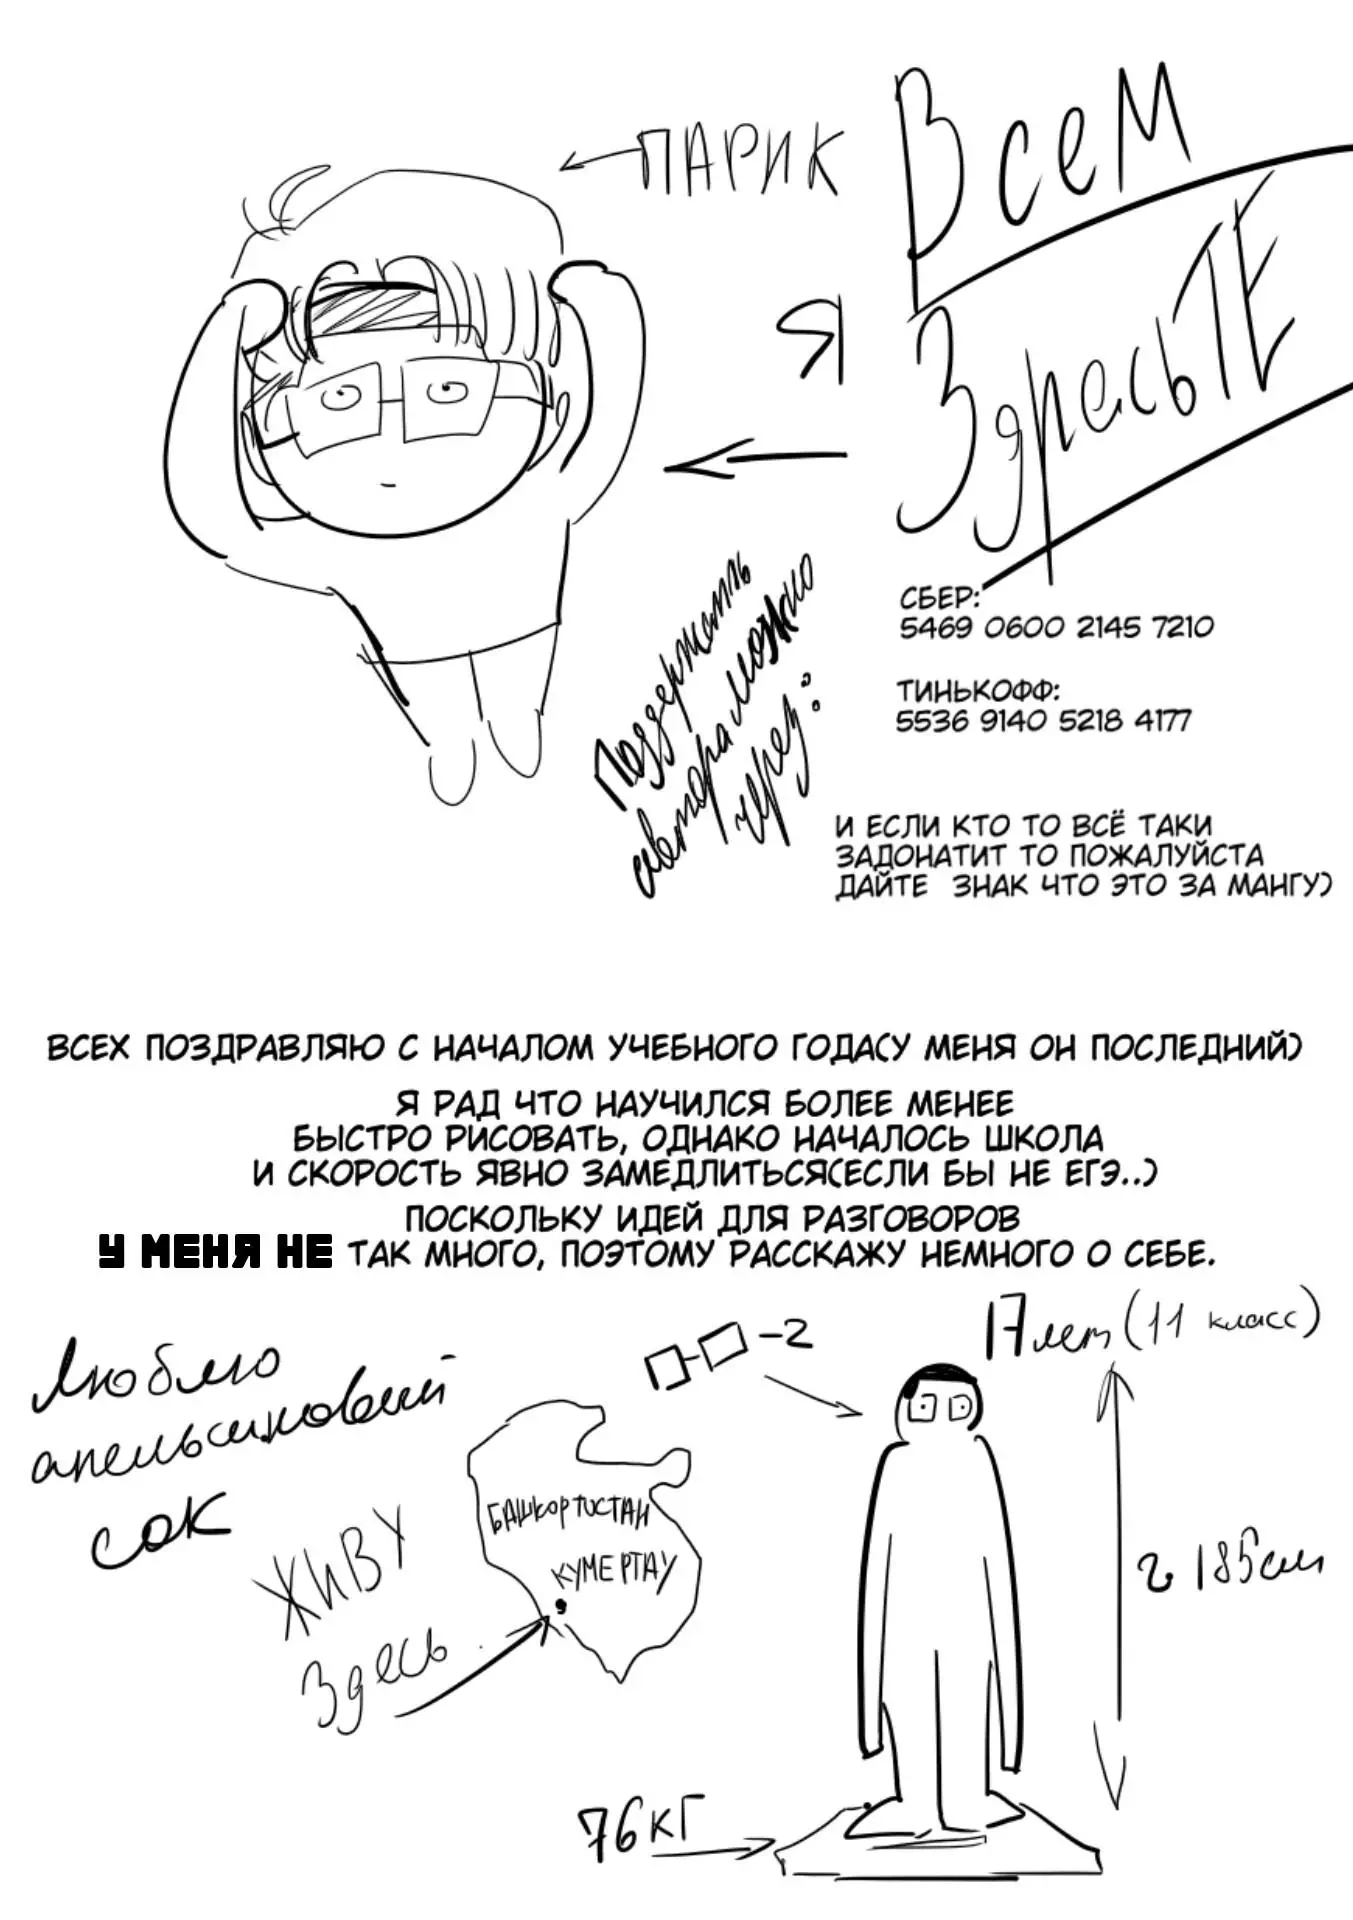 ПАРИК
Всем
ЗдресьТЕ
Я
Поддержать
автора можно
через:
СБЕР:
5469 0600 2145 7210
ТИНЬКОФФ:
5536 9140 5218 4177
И ЕСЛИ КТО ТО ВСЁ ТАКИ
ЗАДОНАТИТ ТО ПОЖАЛУЙСТА
ДАЙТЕ ЗНАК ЧТО ЭТО ЗА МАНГУ)
ВСЕХ ПОЗДРАВЛЯЮ С НАЧАЛОМ УЧЕБНОГО ГОДА(У МЕНЯ ОН ПОСЛЕДНИЙ)
Я РАД ЧТО НАУЧИЛСЯ БОЛЕЕ МЕНЕЕ
БЫСТРО РИСОВАТЬ, ОДНАКО НАЧАЛОСЬ ШКОЛА
И СКОРОСТЬ ЯВНО ЗАМЕДЛИТЬСЯ(ЕСЛИ БЫ НЕ ЕГЭ..)
ПОСКОЛЬКУ ИДЕЙ ДЛЯ РАЗГОВОРОВ
У МЕНЯ НЕ ТАК МНОГО, ПОЭТОМУ РАССКАЖУ НЕМНОГО О СЕБЕ.
Люблю
апельсиновый
сок
ЖИВУ
Здесь
БАШКОРТОСТАН
КУМЕРТАУ
-2
17 лет (11 класс)
185см
76 КГ